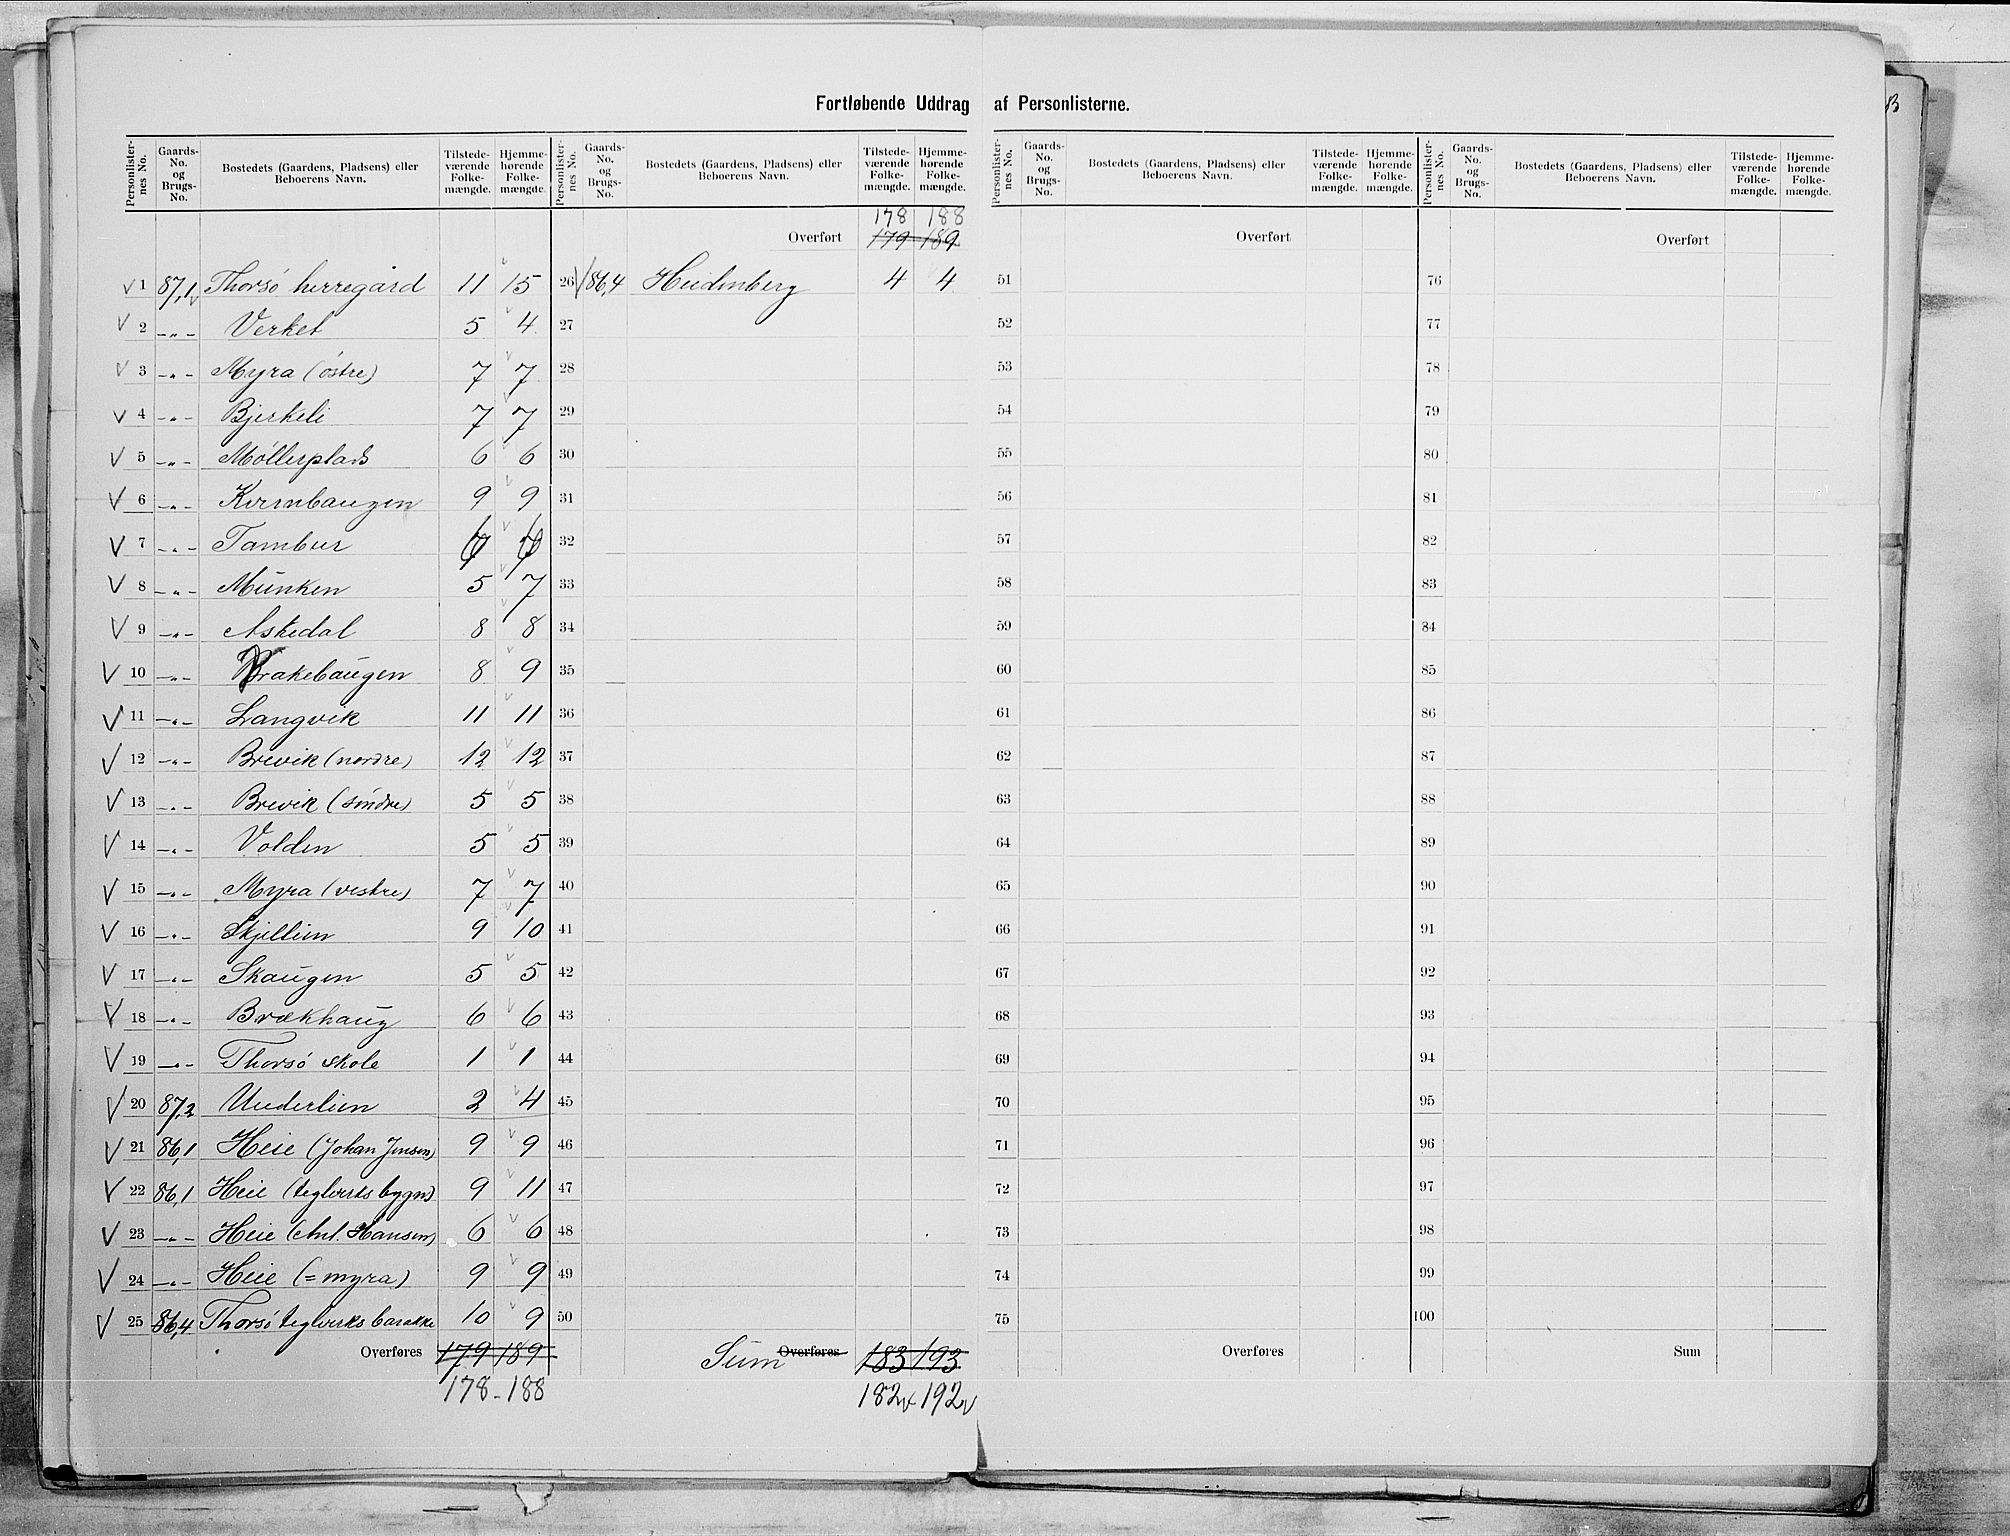 Fortløbende Uddrag af Personlisterne.
Personlister-nes No. Gaards-No. og Brugs-No. Bostedets (Gaardens, Pladsens) eller Beboerens Navn. Tilstede-værende Folke-mængde. Hjemme-hørende Folke-mængde. Personlister-nes No. Gaards-No. og Brugs-No. Bostedets (Gaardens, Pladsens) eller Beboerens Navn. Tilstede-værende Folke-mængde. Hjemme-hørende Folke-mængde. Personlister-nes No. Gaards-No. og Brugs-No. Bostedets (Gaardens, Pladsens) eller Beboerens Navn. Tilstede-værende Folke-mængde. Hjemme-hørende Folke-mængde. Personlister-nes No. Gaards-No. og Brugs-No. Bostedets (Gaardens, Pladsens) eller Beboerens Navn. Tilstede-værende Folke-mængde. Hjemme-hørende Folke-mængde.
178 188
Overført 179 189 Overført Overført
1 87,1 Thorsø herregård 11 15 26 86,4 Heidenberg 4 4 51 76
2 -"- Verket 5 4 27 52 77
3 -"- Myra (østre) 7 7 28 53 78
4 -"- Bjerkeli 7 7 29 54 79
5 -"- Møllerplads 6 6 30 55 80
6 -"- Kvernhaugen 9 9 31 56 81
7 -"- Tambur 32 57 82
8 -"- Munken 5 7 33 58 83
9 -"- Askedal 8 8 34 59 84
10 -"- Brakehaugen 8 9 35 60 85
11 -"- Langvik 11 11 36 61 86
12 -"- Brevik (nordre) 12 12 37 62 87
13 -"- Brevik (søndre) 5 5 38 63 88
14 -"- Volden 5 5 39 64 89
15 -"- Myra (vestre) 7 7 40 65 90
16 -"- Skjellien 9 10 41 66 91
17 -"- Skaugen 5 5 42 67 92
18 -"- Brækhaug 6 6 43 68 93
19 -"- Thorsø skole 1 1 44 69 94
20 87,2 Underlien 2 4 45 70 95
21 86,1 Heie (Johan Jensen) 9 9 46 71 96
22 86,1 Heie (teglverks bygn) 9 11 47 72 97
23 -"- Heie (Ant. Hansen) 6 6 48 73 98
24 -"- Heie (=myra) 9 9 49 74 99
25 86,4 Thorsø teglverks barakke 10 9 50 75 100
Overføres 179 189 Sum Overføres 183 193 Overføres Sum
178 - 188 182 192